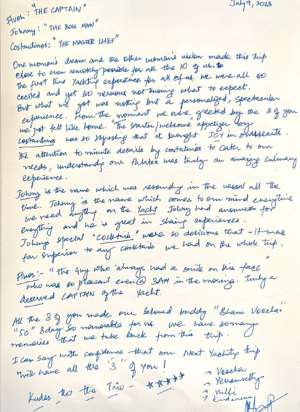 July 9, 2023
Avon: "THE CAPTAIN"
Johnny: "THE BOW MAN"
Costantinos: "THE MASTER CHEF"
One woman's dream and the other woman's vision made this trip
close to even smoothly possible for all the 10 of us.
the first time Yachting experience for all of us. We were all so
excited and yet so nervous not knowing what to expect.
But what we got was nothing but a personalized, spectacular
experience. From the moment we were greeted by the 3 of you
we felt like home. The starter/welcome appetiger by
costantinos was so inspiring that it brought JOY in
the attention to minute details by costantinos to Cater to our
needs, understanding our Palates was truly an amazing culinary
experience.
Johny is the name which was resounding in the vessel all the
time. Johny is the name which comes to our mind everytime
we need anything on the Yacht. Johny had answers for
everything and he is great in sharing experiences.
Johny's special "cocktail" were so delicious that - it was
far superior to any cocktails we had on the whole trip.
"the guy who always had a smile on his face"
who was so pleasant even @ 3AM in the morning. Truly a
deserved CAPTAIN of the Yacht.
All the 3 of you made our beloved buddy "Bhanu Veecha"
"50" Bday so memorable for us. We have so many
memories that we take back from this trip.
I can say with confidence that our Next Yachity trip
will have all the "3" of you!
Kudos to the Trio - *****
→ Veecha
→
→
→